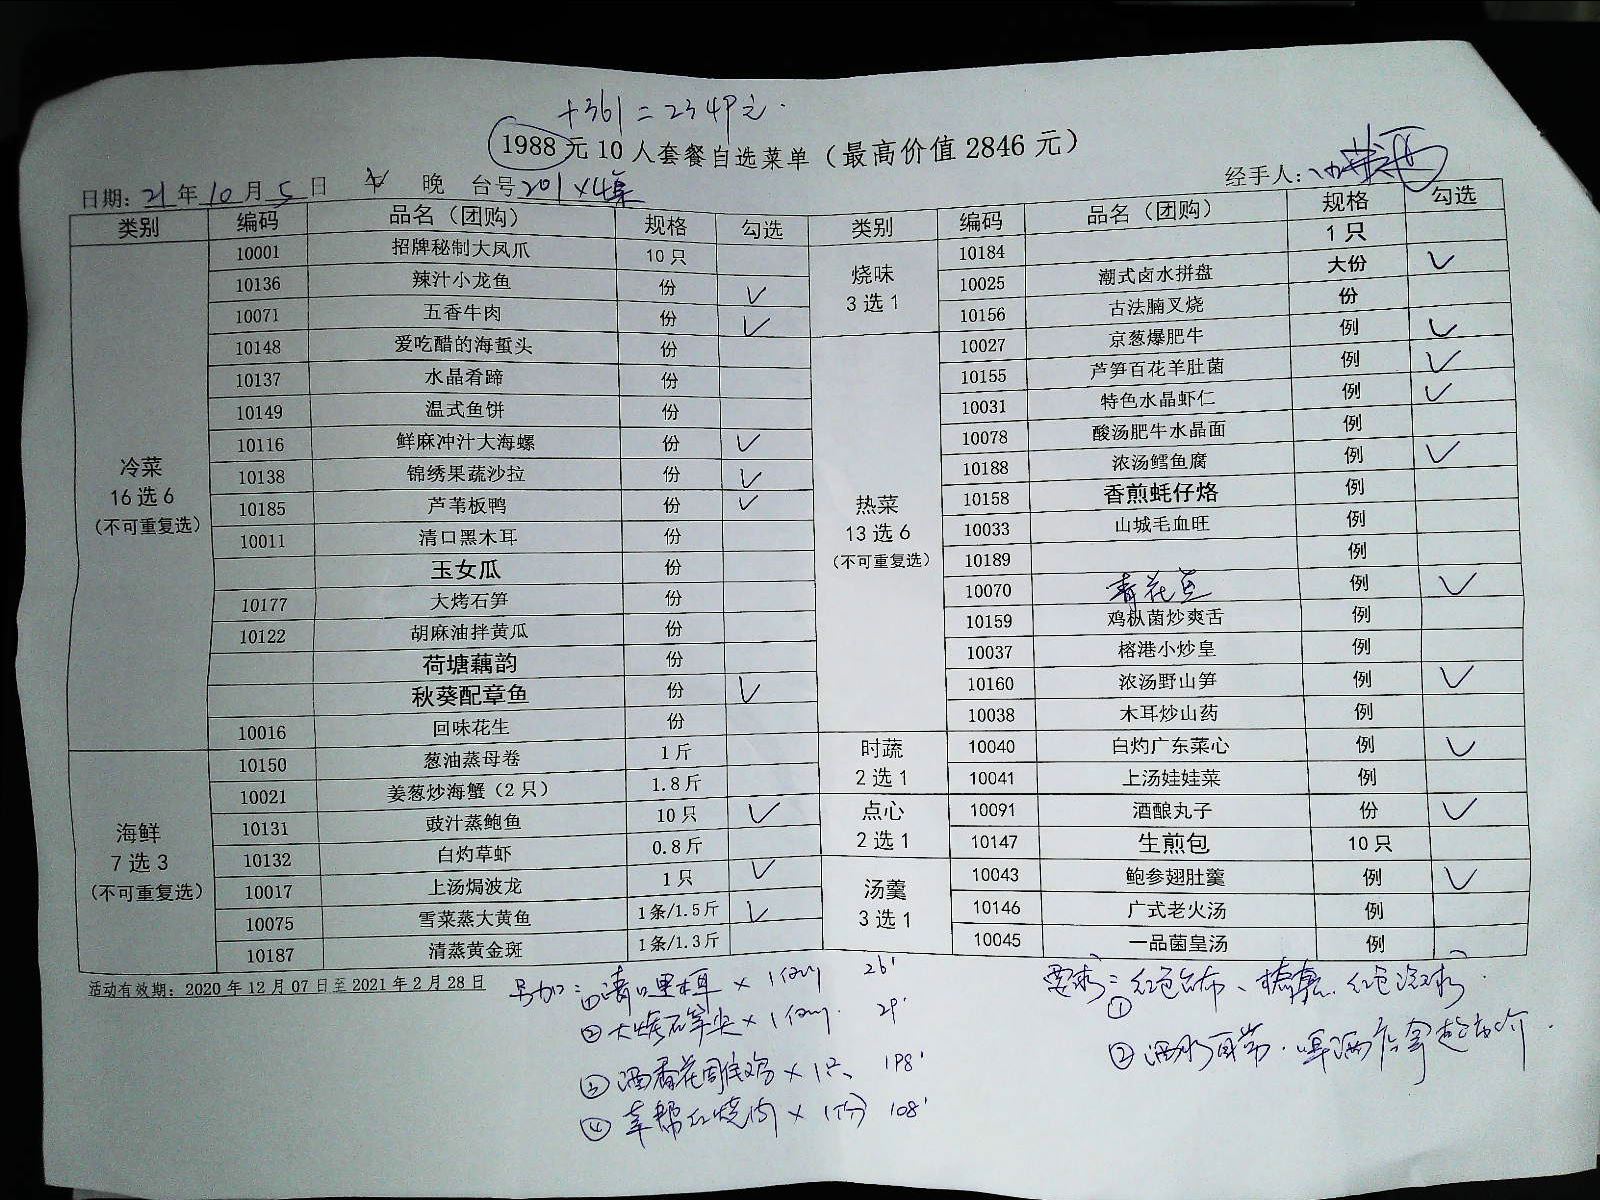 +361=2349元.
1988元10人套餐自选菜单（最高价值2846元）
日期:21年10月5日 晚 台号201×4桌 经手人:
类别 编码 品名（团购） 规格 勾选 类别 编码 品名（团购） 规格 勾选
冷菜
16选6
（不可重复选）
10001 招牌秘制大凤爪 10只
10136 辣汁小龙鱼 份 ✓
10071 五香牛肉 份 ✓
10148 爱吃醋的海蜇头 份
10137 水晶肴蹄 份
10149 温式鱼饼 份
10116 鲜麻冲汁大海螺 份 ✓
10138 锦绣果蔬沙拉 份 ✓
10185 芦苇板鸭 份 ✓
10011 清口黑木耳 份
玉女瓜 份
10177 大烤石笋 份
10122 胡麻油拌黄瓜 份
荷塘藕韵 份
秋葵配章鱼 份 ✓
10016 回味花生 份
海鲜
7选3
（不可重复选）
10150 葱油蒸母卷 1斤
10021 姜葱炒海蟹（2只） 1.8斤
10131 豉汁蒸鲍鱼 10只 ✓
10132 白灼草虾 0.8斤
10017 上汤焗波龙 1只 ✓
10075 雪菜蒸大黄鱼 1条/1.5斤 ✓
10187 清蒸黄金斑 1条/1.3斤
烧味
3选1
10184 1只
10025 潮式卤水拼盘 大份 ✓
10156 古法腩叉烧 份
热菜
13选6
（不可重复选）
10027 京葱爆肥牛 例 ✓
10155 芦笋百花羊肚菌 例 ✓
10031 特色水晶虾仁 例 ✓
10078 酸汤肥牛水晶面 例
10188 浓汤鳕鱼腐 例 ✓
10158 香煎蚝仔烙 例
10033 山城毛血旺 例
10189 例
10070 青花 例 ✓
10159 鸡枞菌炒爽舌 例
10037 榕港小炒皇 例
10160 浓汤野山笋 例 ✓
10038 木耳炒山药 例
时蔬
2选1
10040 白灼广东菜心 例 ✓
10041 上汤娃娃菜 例
点心
2选1
10091 酒酿丸子 份 ✓
10147 生煎包 10只
汤羹
3选1
10043 鲍参翅肚羹 例 ✓
10146 广式老火汤 例
10045 一品菌皇汤 例
活动有效期：2020年12月07日至2021年2月28日
另加：①清口黑木耳×1份 26'
②大烤石笋尖×1份 29'
③酒香花雕鸡×1只 198'
④本帮红烧肉×1份 108'
要求：①红色台布、红色汽球
②酒水自带.